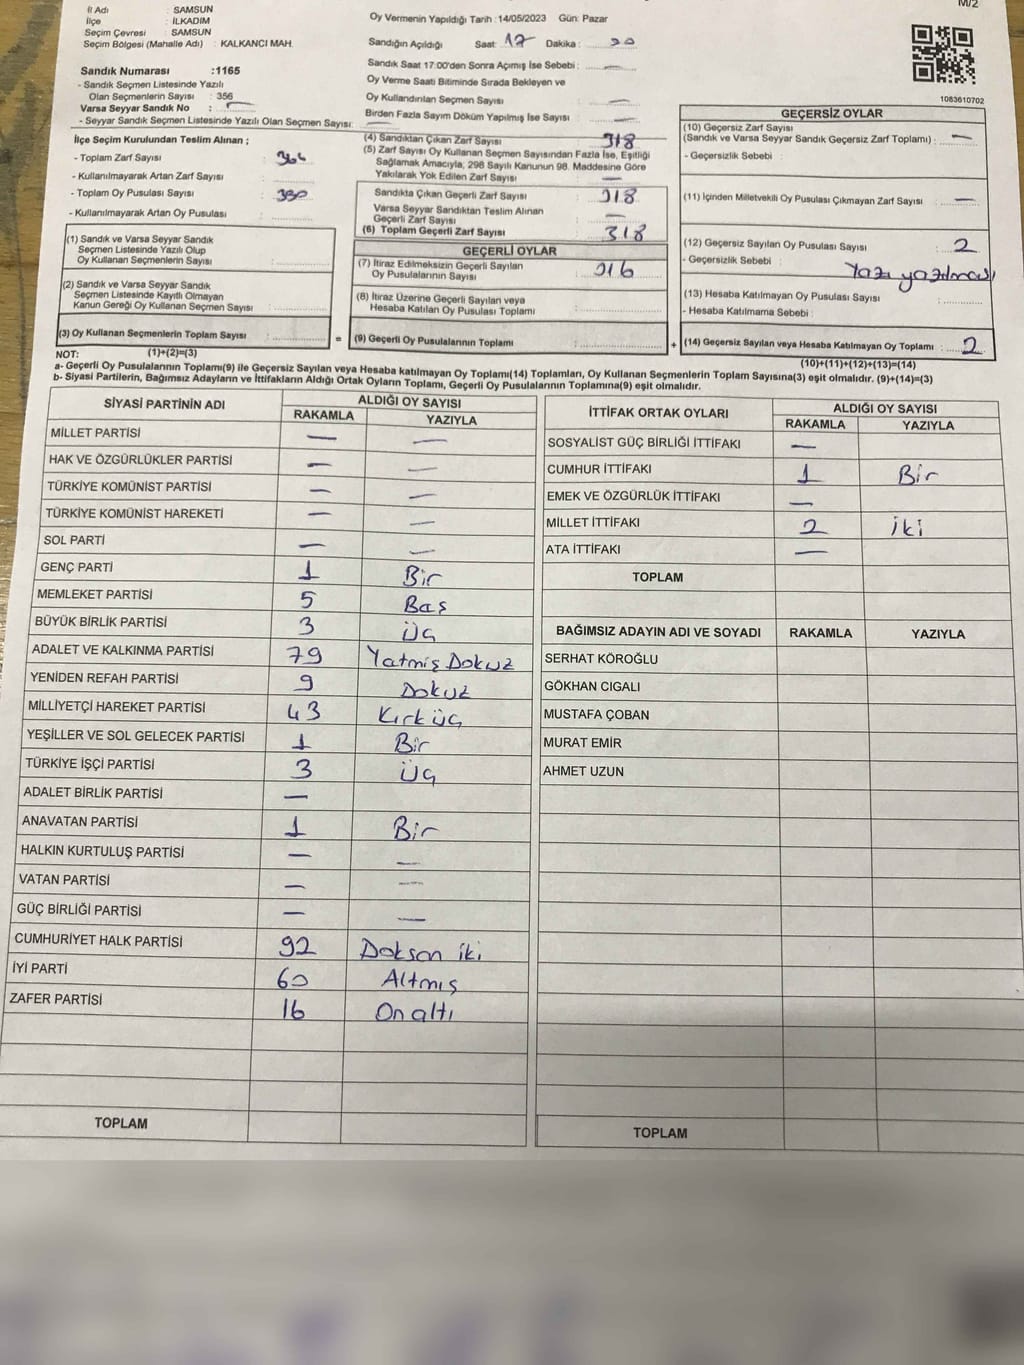 M/2
İl Adı : SAMSUN
İlçe : İLKADIM
Seçim Çevresi : SAMSUN
Seçim Bölgesi (Mahalle Adı) : KALKANCI MAH.
Sandık Numarası :1165
- Sandık Seçmen Listesinde Yazılı
Olan Seçmenlerin Sayısı : 356
Varsa Seyyar Sandık No :
- Seyyar Sandık Seçmen Listesinde Yazılı Olan Seçmen Sayısı:
Oy Vermenin Yapıldığı Tarih :14/05/2023 Gün: Pazar
Sandığın Açıldığı Saat: 17 Dakika :
Sandık Saat 17:00'den Sonra Açımış İse Sebebi : —
Oy Verme Saati Bitiminde Sırada Bekleyen ve
Oy Kullandırılan Seçmen Sayısı : —
Birden Fazla Sayım Döküm Yapılmış İse Sayısı : —
1083610702
İlçe Seçim Kurulundan Teslim Alınan ;
- Toplam Zarf Sayısı : 364
- Kullanılmayarak Artan Zarf Sayısı :
- Toplam Oy Pusulası Sayısı : 380
- Kullanılmayarak Artan Oy Pusulası :
(1) Sandık ve Varsa Seyyar Sandık
Seçmen Listesinde Yazılı Olup
Oy Kullanan Seçmenlerin Sayısı :
(2) Sandık ve Varsa Seyyar Sandık
Seçmen Listesinde Kayıtlı Olmayan
Kanun Gereği Oy Kullanan Seçmen Sayısı :
(3) Oy Kullanan Seçmenlerin Toplam Sayısı :
(4) Sandıktan Çıkan Zarf Sayısı 318
(5) Zarf Sayısı Oy Kullanan Seçmen Sayısından Fazla İse, Eşitliği
Sağlamak Amacıyla, 298 Sayılı Kanunun 98. Maddesine Göre
Yakılarak Yok Edilen Zarf Sayısı : —
Sandıkta Çıkan Geçerli Zarf Sayısı : 318
Varsa Seyyar Sandıktan Teslim Alınan
Geçerli Zarf Sayısı : —
(6) Toplam Geçerli Zarf Sayısı : 318
GEÇERLİ OYLAR
(7) İtiraz Edilmeksizin Geçerli Sayılan
Oy Pusulalarının Sayısı : 316
(8) İtiraz Üzerine Geçerli Sayılan veya
Hesaba Katılan Oy Pusulası Toplamı :
= (9) Geçerli Oy Pusulalarının Toplamı : +
GEÇERSİZ OYLAR
(10) Geçersiz Zarf Sayısı
(Sandık ve Varsa Seyyar Sandık Geçersiz Zarf Toplamı) : —
- Geçersizlik Sebebi :
(11) İçinden Milletvekili Oy Pusulası Çıkmayan Zarf Sayısı : —
(12) Geçersiz Sayılan Oy Pusulası Sayısı : 2
- Geçersizlik Sebebi : Yazı yazılması
(13) Hesaba Katılmayan Oy Pusulası Sayısı :
- Hesaba Katılmama Sebebi :
(14) Geçersiz Sayılan veya Hesaba Katılmayan Oy Toplamı : 2
NOT: (1)+(2)=(3) (10)+(11)+(12)+(13)=(14)
a- Geçerli Oy Pusulalarının Toplamı(9) ile Geçersiz Sayılan veya Hesaba katılmayan Oy Toplamı(14) Toplamları, Oy Kullanan Seçmenlerin Toplam Sayısına(3) eşit olmalıdır. (9)+(14)=(3)
b- Siyasi Partilerin, Bağımsız Adayların ve İttifakların Aldığı Ortak Oyların Toplamı, Geçerli Oy Pusulalarının Toplamına(9) eşit olmalıdır.
SİYASİ PARTİNİN ADI ALDIĞI OY SAYISI
RAKAMLA YAZIYLA
MİLLET PARTİSİ — —
HAK VE ÖZGÜRLÜKLER PARTİSİ — —
TÜRKİYE KOMÜNİST PARTİSİ — —
TÜRKİYE KOMÜNİST HAREKETİ — —
SOL PARTİ — —
GENÇ PARTİ 1 Bir
MEMLEKET PARTİSİ 5 Baş
BÜYÜK BİRLİK PARTİSİ 3 üç
ADALET VE KALKINMA PARTİSİ 79 Yatmiş Dokuz
YENİDEN REFAH PARTİSİ 9 Dokuz
MİLLİYETÇİ HAREKET PARTİSİ 43 Kırk üç
YEŞİLLER VE SOL GELECEK PARTİSİ 1 Bir
TÜRKİYE İŞÇİ PARTİSİ 3 üç
ADALET BİRLİK PARTİSİ —
ANAVATAN PARTİSİ 1 Bir
HALKIN KURTULUŞ PARTİSİ — —
VATAN PARTİSİ — —
GÜÇ BİRLİĞİ PARTİSİ — —
CUMHURİYET HALK PARTİSİ 92 Doksan iki
İYİ PARTİ 60 Altmış
ZAFER PARTİSİ 16 On altı
TOPLAM
İTTİFAK ORTAK OYLARI ALDIĞI OY SAYISI
RAKAMLA YAZIYLA
SOSYALİST GÜÇ BİRLİĞİ İTTİFAKI —
CUMHUR İTTİFAKI 1 Bir
EMEK VE ÖZGÜRLÜK İTTİFAKI —
MİLLET İTTİFAKI 2 iki
ATA İTTİFAKI —
TOPLAM
BAĞIMSIZ ADAYIN ADI VE SOYADI RAKAMLA YAZIYLA
SERHAT KÖROĞLU
GÖKHAN CIGALI
MUSTAFA ÇOBAN
MURAT EMİR
AHMET UZUN
TOPLAM